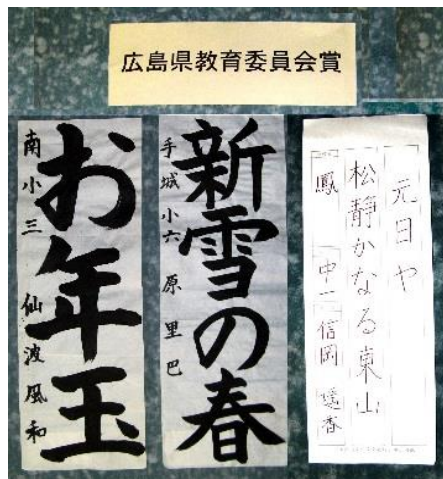 広島県教育委員会賞
元日や
松静かなる東山
鳳 中一 信岡 遥香
新雪の春
手城小六 原里巴
お年玉
南小三 仙波風和